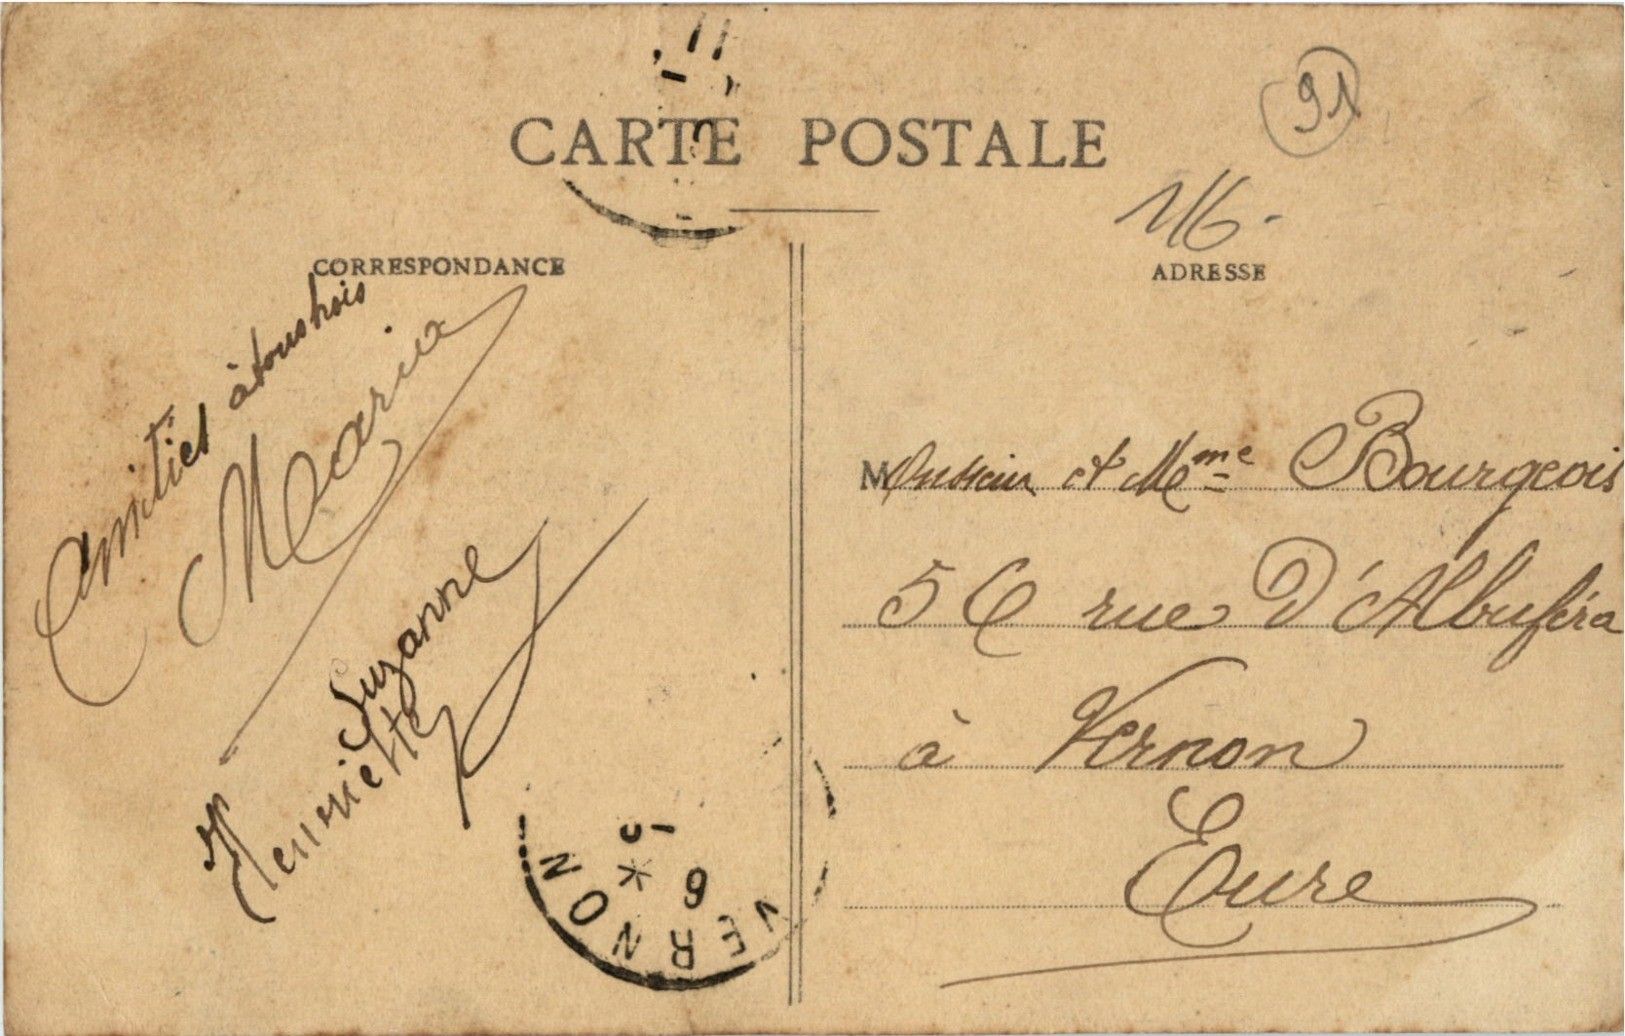 CARTE POSTALE
91
116-
CORRESPONDANCE
ADRESSE
Amitiés à tous trois
Maria
Suzanne
Henriette
Monsieur et Mme Bourgeois
56 rue D'Albuféra
à Vernon
Eure
VERNON
6